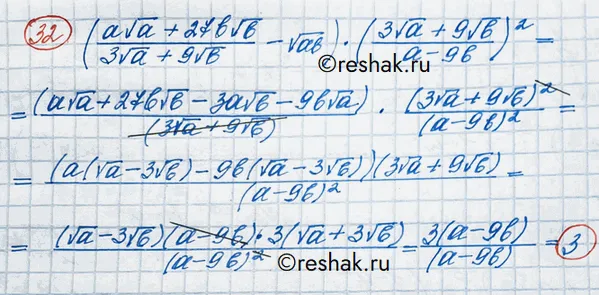 32 ((a√a + 27b√b)/(3√a + 9√b) − √ab) · ((3√a + 9√b)/(a − 9b))² =
= (a√a + 27b√b − 3a√b − 9b√a)/(3√a + 9√b) · (3√a + 9√b)²/(a − 9b)² =
= (a(√a − 3√b) − 9b(√a − 3√b))(3√a + 9√b)/(a − 9b)² =
= (√a − 3√b)(a − 9b) · 3(√a + 3√b)/(a − 9b)² = 3(a − 9b)/(a − 9b) = 3
©reshak.ru
©reshak.ru